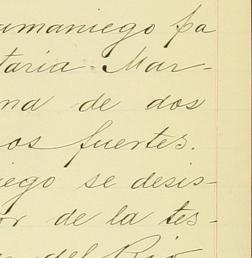 amaniego pa
taria Mar-
na de dos
os fuertes.
iego se desis-
or de la tes-
del Rio